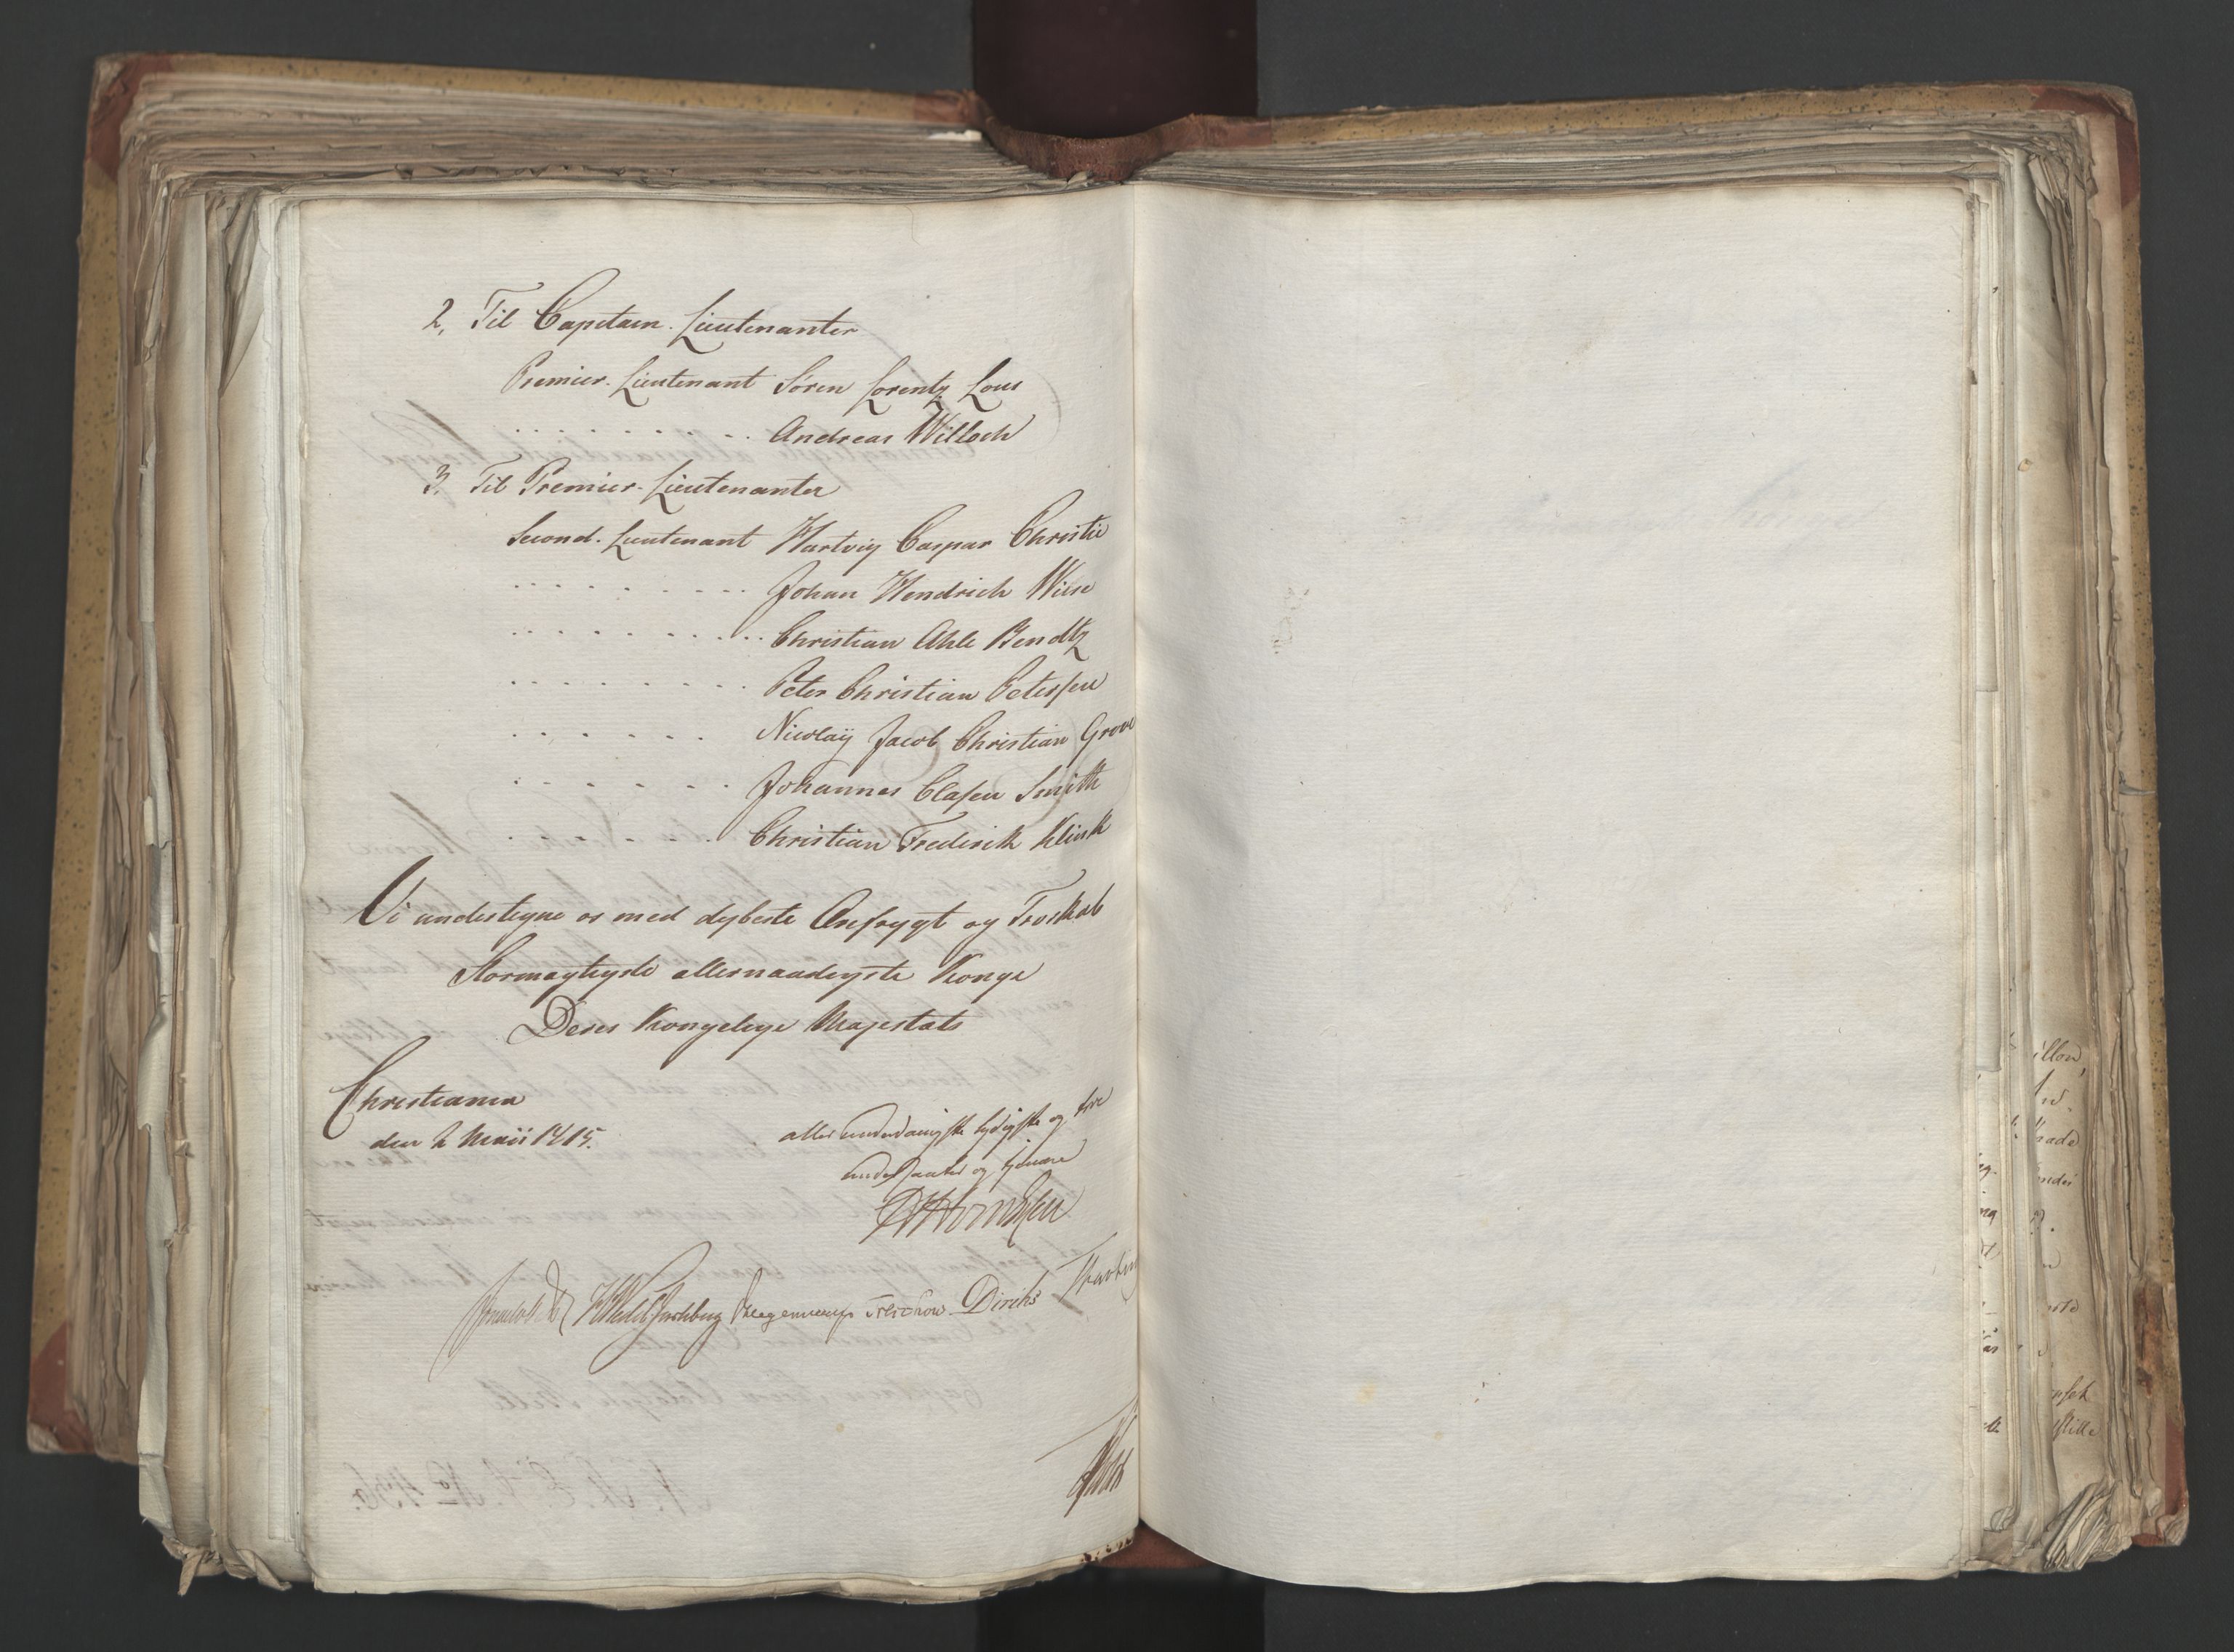 2, Til Capitain-Lieutenanter
Premier-Lieutenant Sören Lorentz Lous
. . . . . . . . . . Andreas Willoch
3, Til Premier-Lieutenanter
Second-Lieutenant Hartvig Caspar Christie
. . . . . . . . . Johan Hendrich Wiese
. . . . . . . . . . Christian Ahle Bendtz
. . . . . . . . Peter Christian Peterſen
. . . . . . Nicolaÿ Jacob Christian Grove
. . . . . . Johannes Claſen Smith
Christian Frederik Klinck
Vi undertegne os med dybeste Ærefrygt og Troskab
Stormægtigste allernaadigste Konge
Deres Kongelige Majestæts
Christiania
den 2 Maii 1815.
allerunderdanigſte lydigſte og troe
underſaatter og tjenere
Treschow Diriks